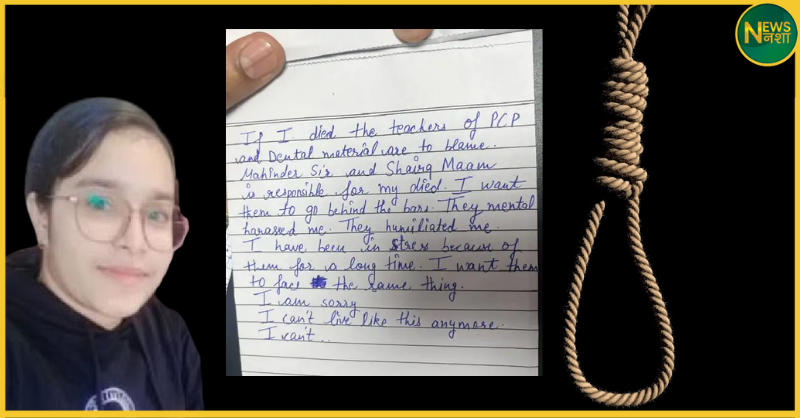 NEWS
नशा
If I died the teachers of PCP
and Dental material are to blame.
Mahinder Sir and Shairg Maam
is responsible for my died. I want
them to go behind the bars. They mental
harassed me. They humiliated me.
I have been in stress because of
them for a long time. I want them
to face the same thing.
I am sorry
I can't live like this anymore.
I can't..